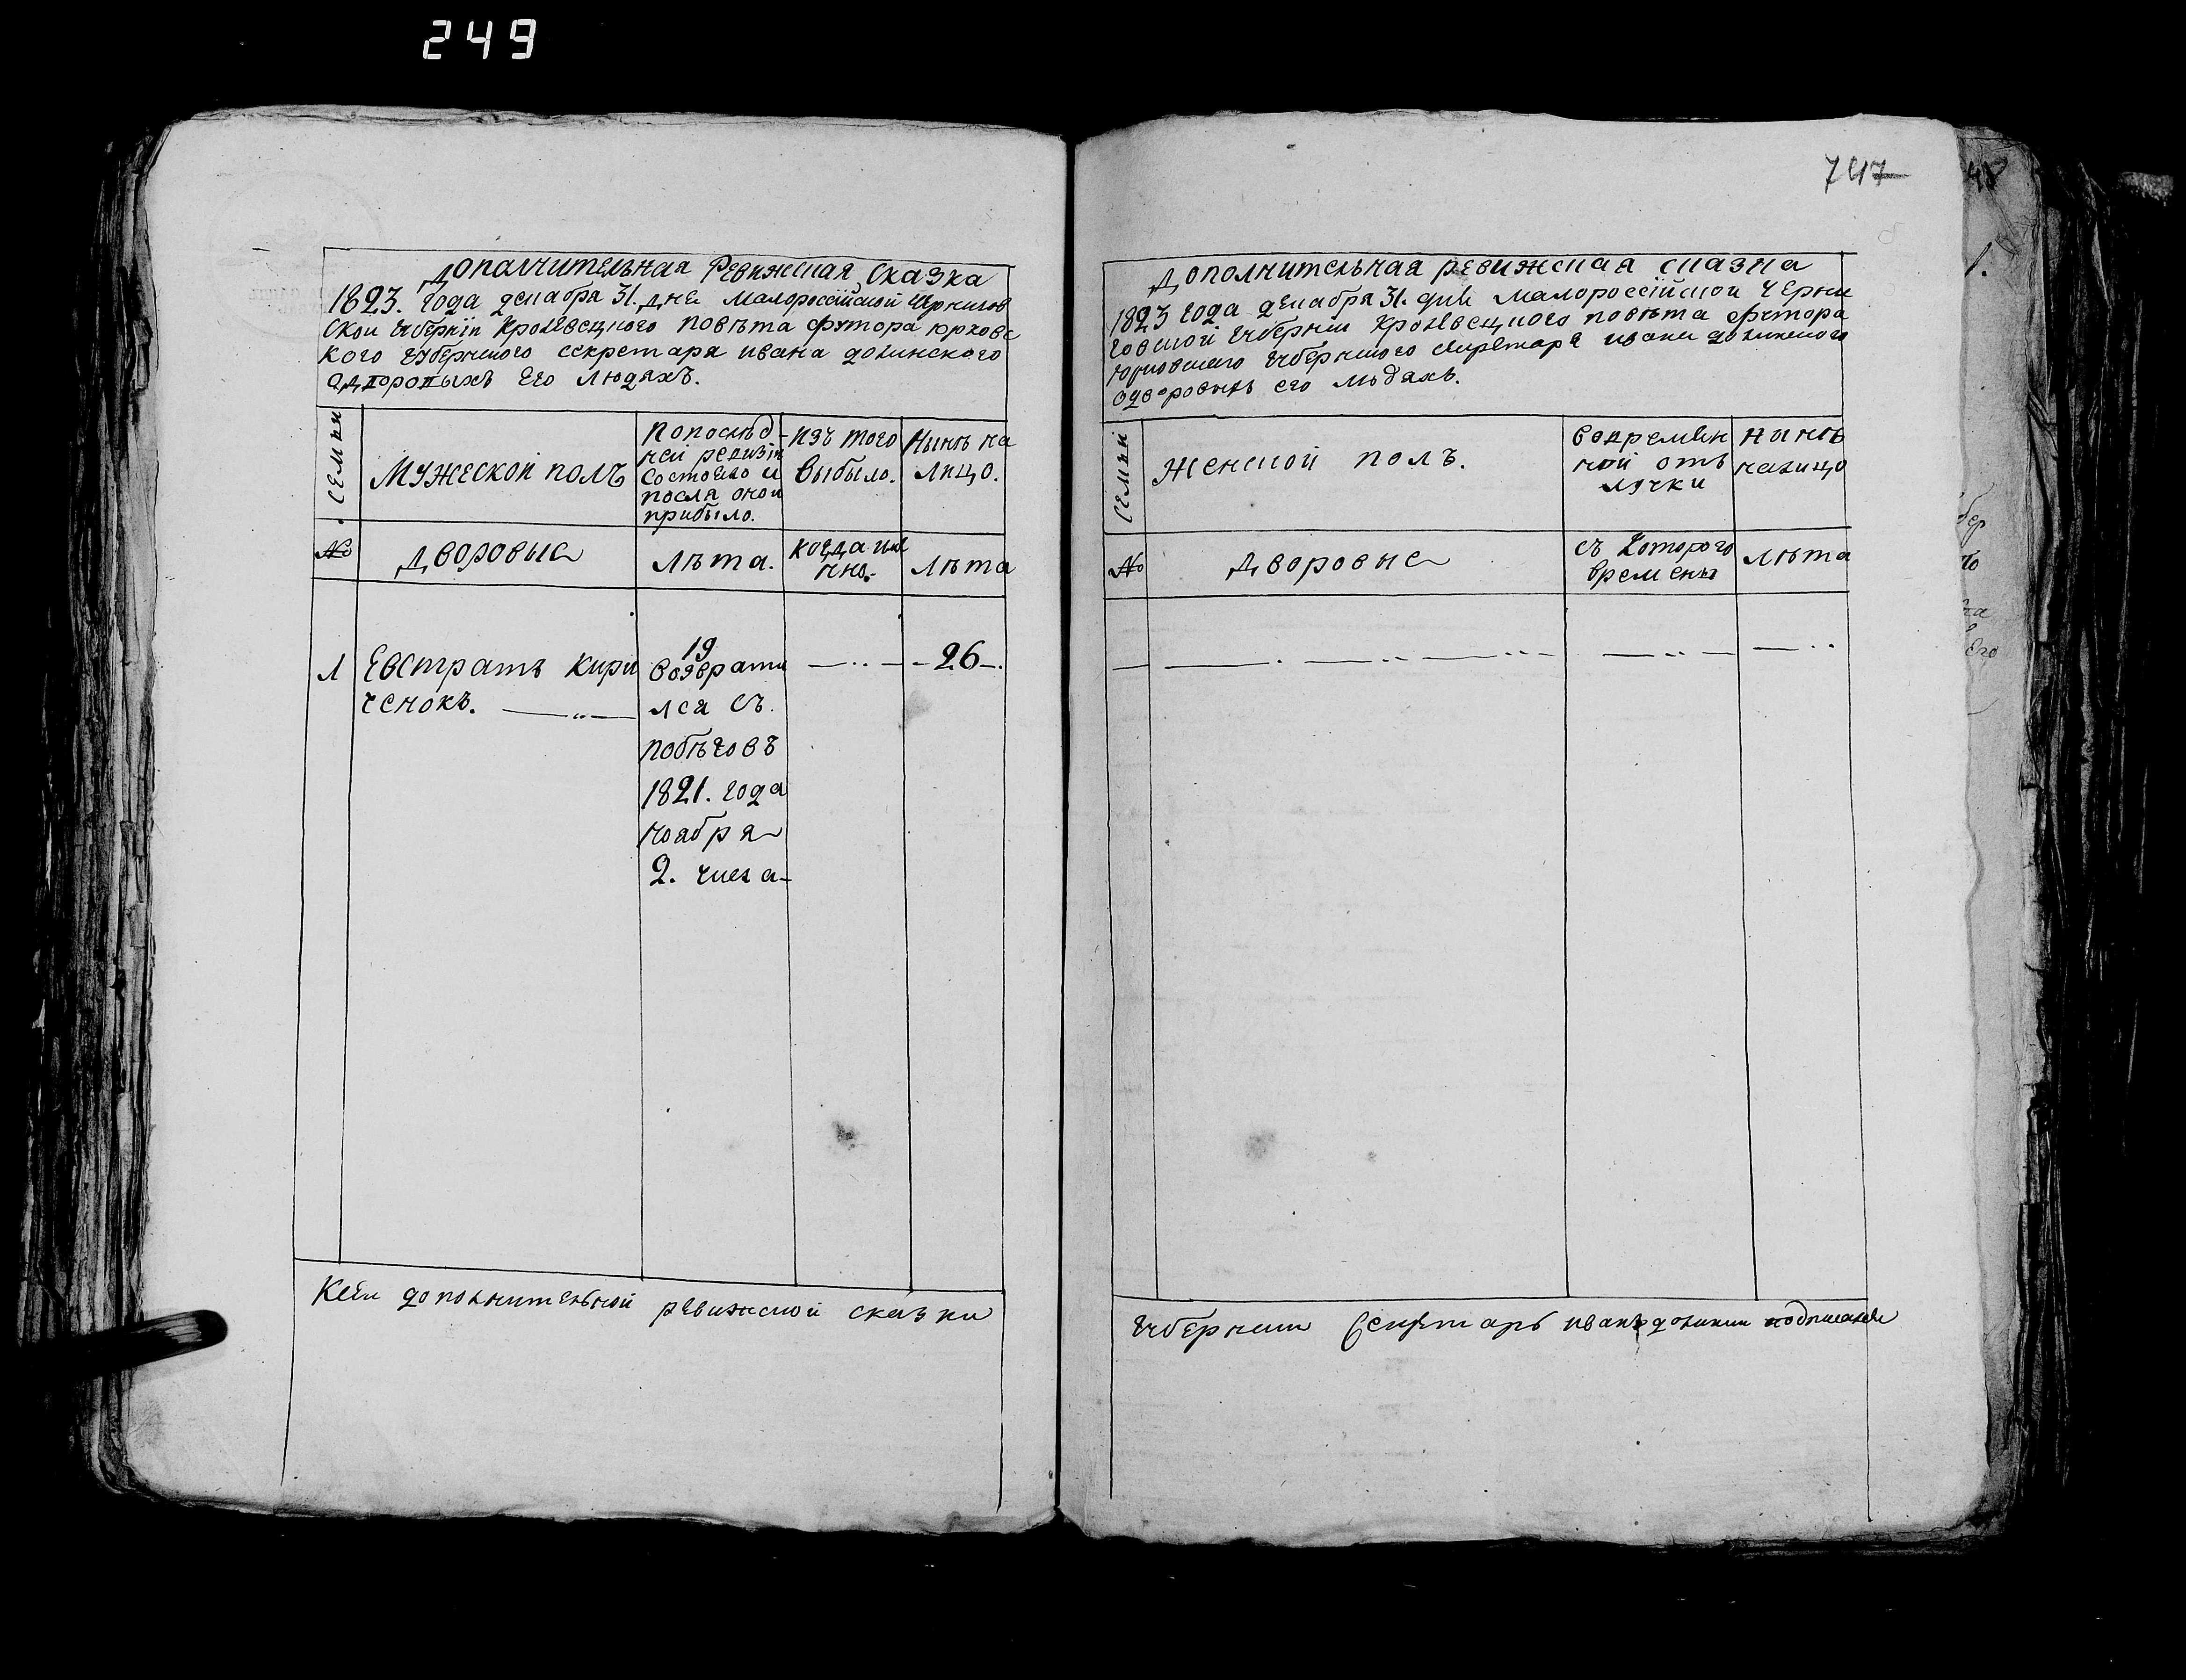 249
Дополнительная Ревижская Сказка
1823. года декабра 31. дне малороссійской Чернигов
ской губерніи Кролевецкого повѣта футора юрковс
кого губернского секретаря ивана долинского
одворовыхъ его людяхъ.
Семьи
Мужеской полъ
Попослѣд-
ней ревизіи
состояло и
посля оной
прибыло.
изъ того
выбыло.
Нынѣ на
лицо.
№
дворовыа
лѣта.
когда име
нно.
лѣта
1
Евстратъ Кири
ченокъ.
19
возврати
лся съ.
побѣговъ
1821. года
ноабря
2. числа
26
Ксей дополнительной ревижской сказки
747
Дополнительная ревижская сказка
1823 года декабра 31. дне малороссійской Черни
говской губернии Кролевецкого повѣта футора
юрковского губернского секретаря ивана долинского
одворовыхъ его людахъ.
Семьи
Женской полъ.
вовремен
ной отъ
лучки
нынѣ
налицо
№
дворовые
съ которого
времены
лѣта
губернски секретарь иванъ долински подписался